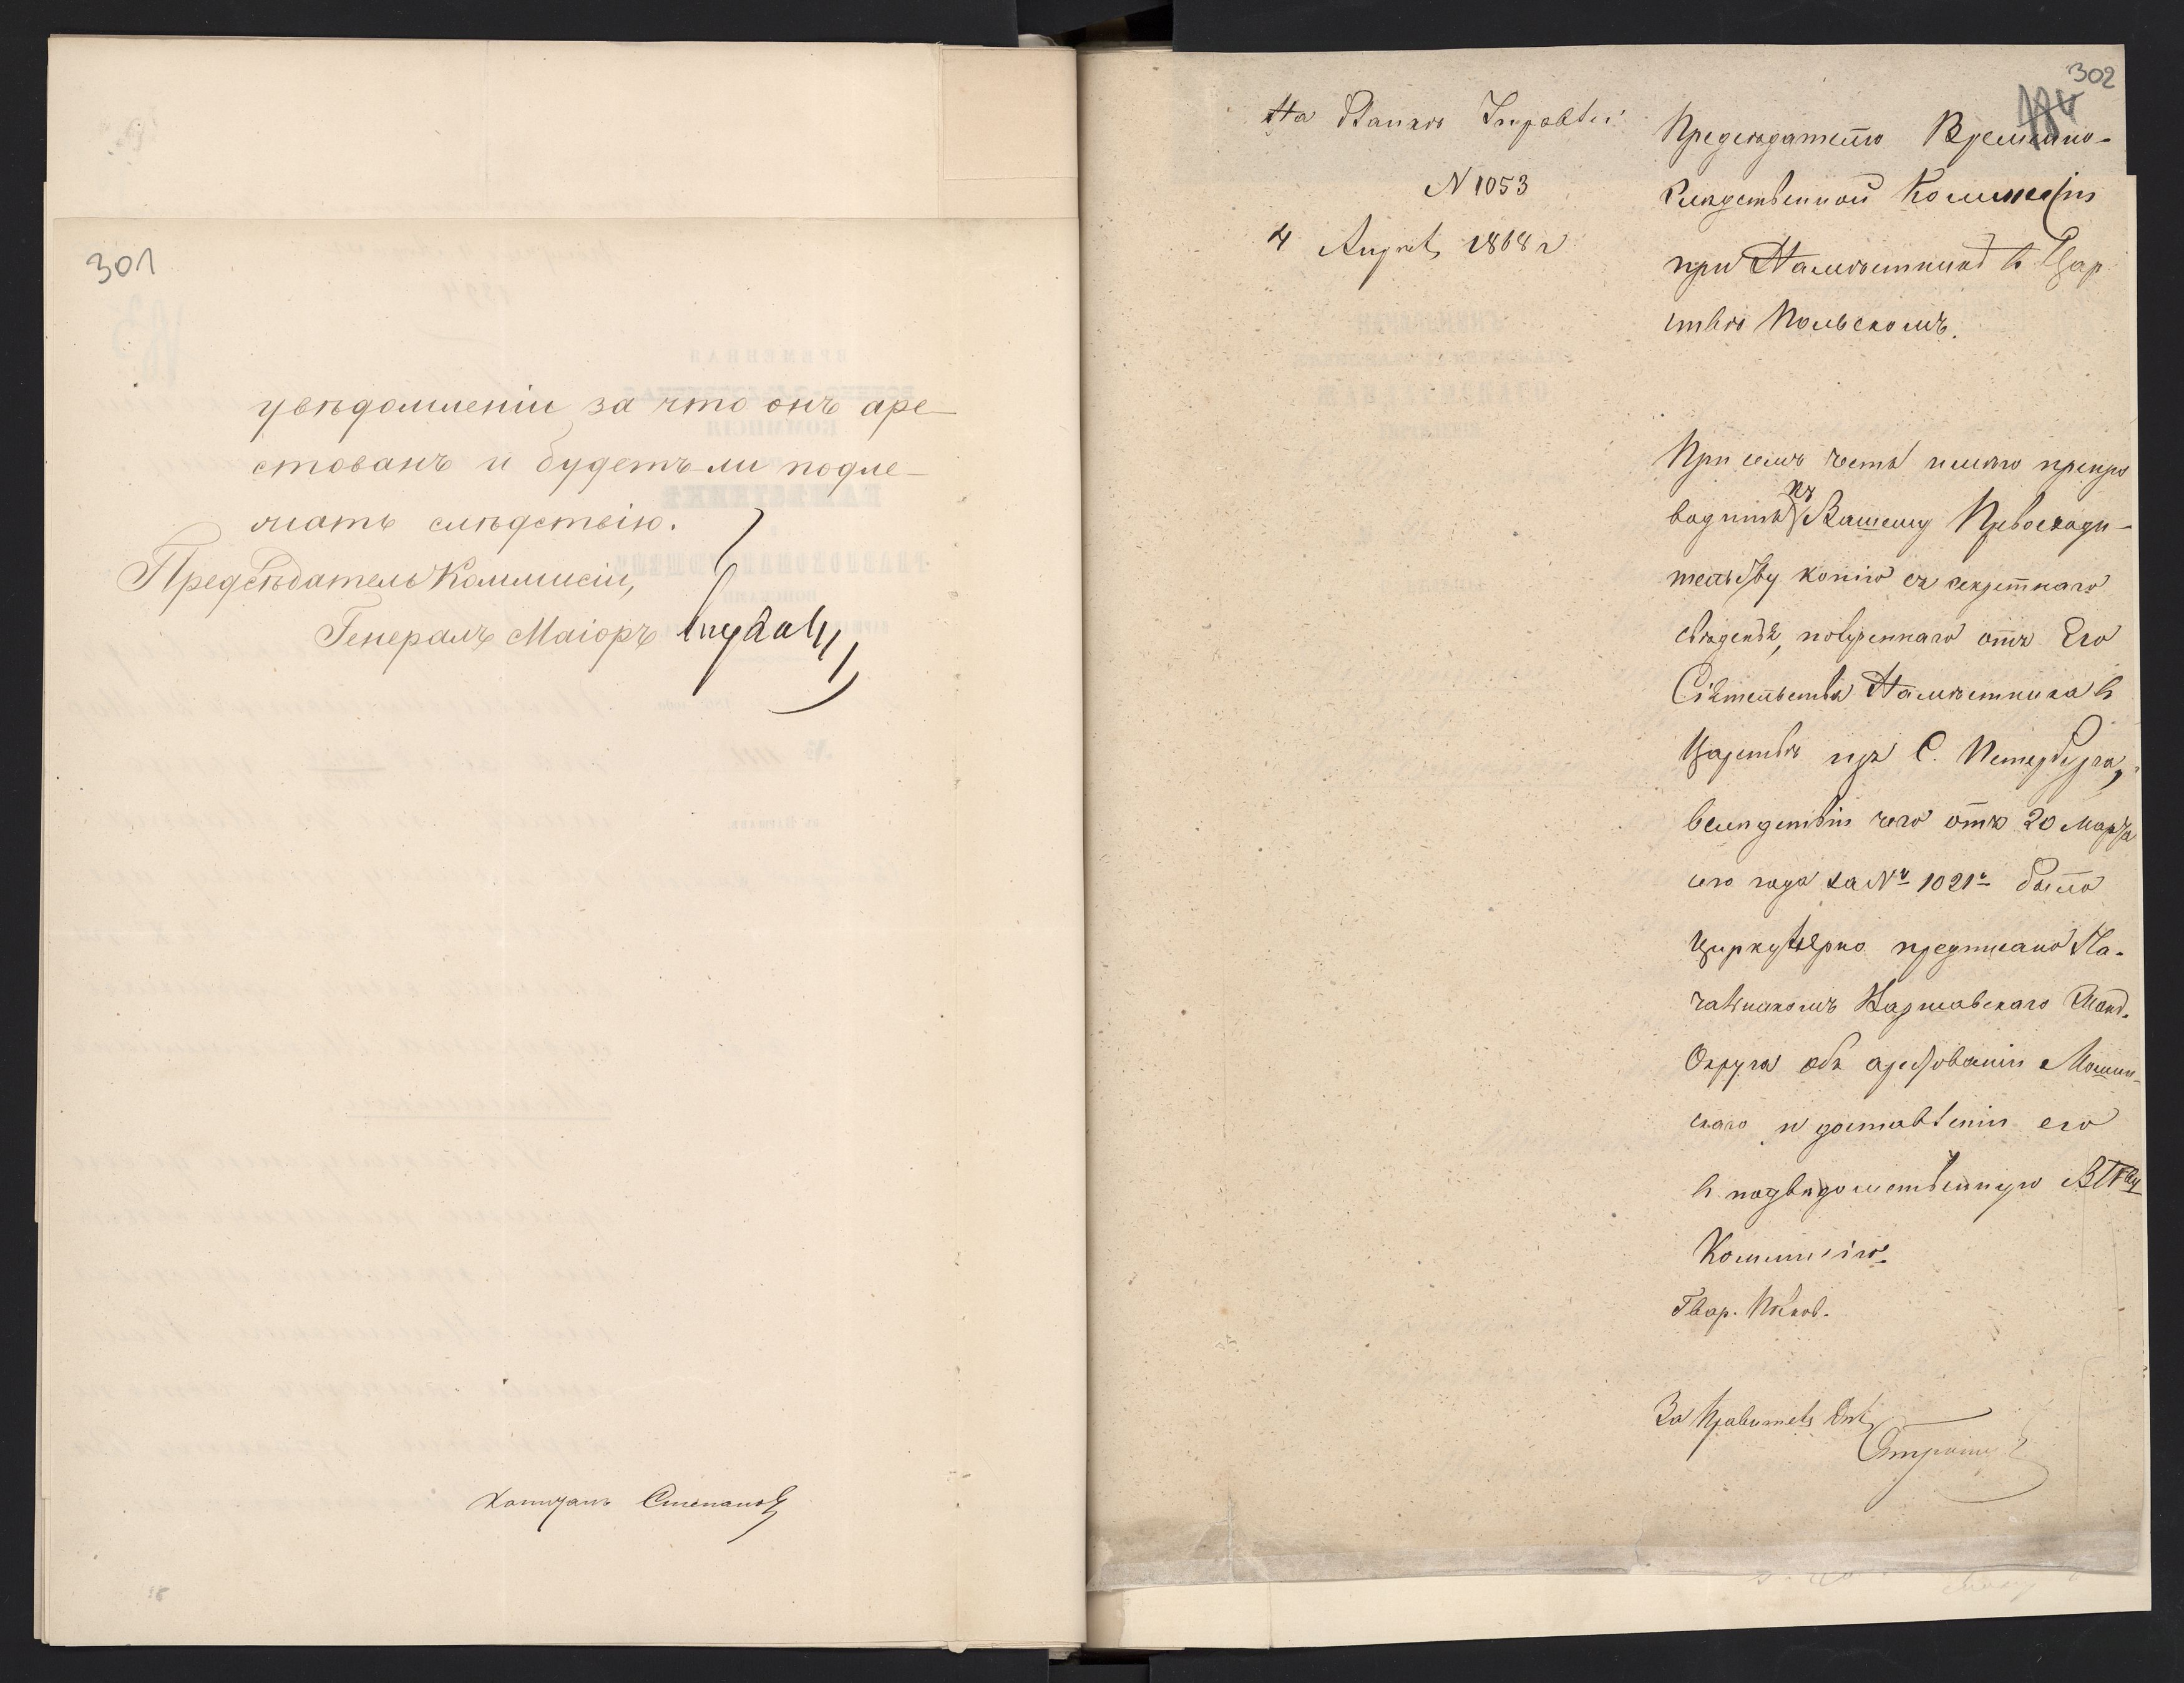 301
увѣдомленіи за что онъ аре-
стованъ и будетъ-ли подле-
жать слѣдствію.
Предсѣдатель Коммисіи,
Генералъ Маіоръ
Капитанъ Степановъ
302
На бланкѣ
N 1053
4 1868 г
Предсѣдателю Временно-
Слѣдственной Коммисіи
при Намѣстникѣ в Цар
ствѣ Польскомъ.
При семъ честь имѣю препро
водить къ Вашему Превосходи-
тельству копію съ секретнаго
полученнаго отъ Его
Сіятельства Намѣстника в
Царствѣ изъ С. Петербурга,
вслѣдствіи чего отъ 20 Марта
сего года за № 1021 было
циркулярно предписано На-
чальникомъ Варшавскаго Жанд.
Округа объ арестованіи
скаго и доставленіи его
в подвѣдомственную
Коммисію.
За Правителя